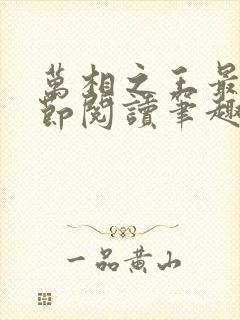 萬相之王最
節閱讀筆趣
一品黃山